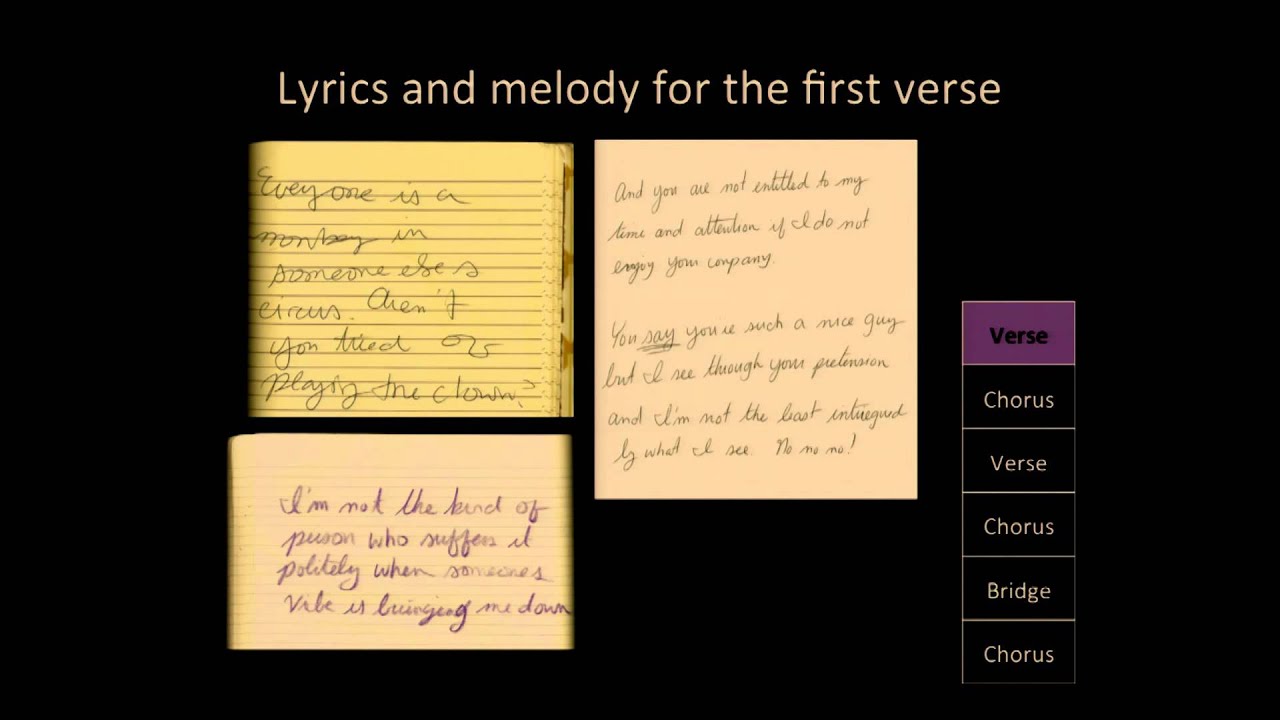 Lyrics and melody for the first verse
Everyone is a
monkey in
someone else's
circus. Aren't
you tired of
playing the clown?
I'm not the kind of
person who suffers it
politely when someones
vibe is bringing me down
And you are not entitled to my
time and attention if I do not
enjoy your company.
You say you're such a nice guy
but I see through your pretension
and I'm not the least intriegued
by what I see. No no no!
Verse
Chorus
Verse
Chorus
Bridge
Chorus